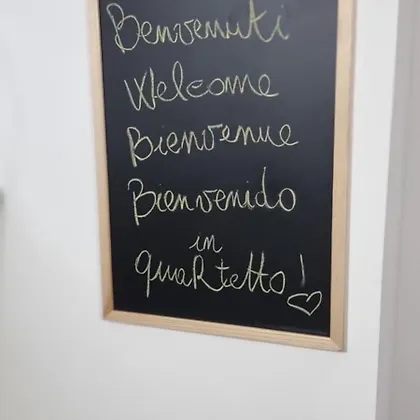 Benvenuti
Welcome
Bienvenue
Bienvenido
in
quaRtetto!